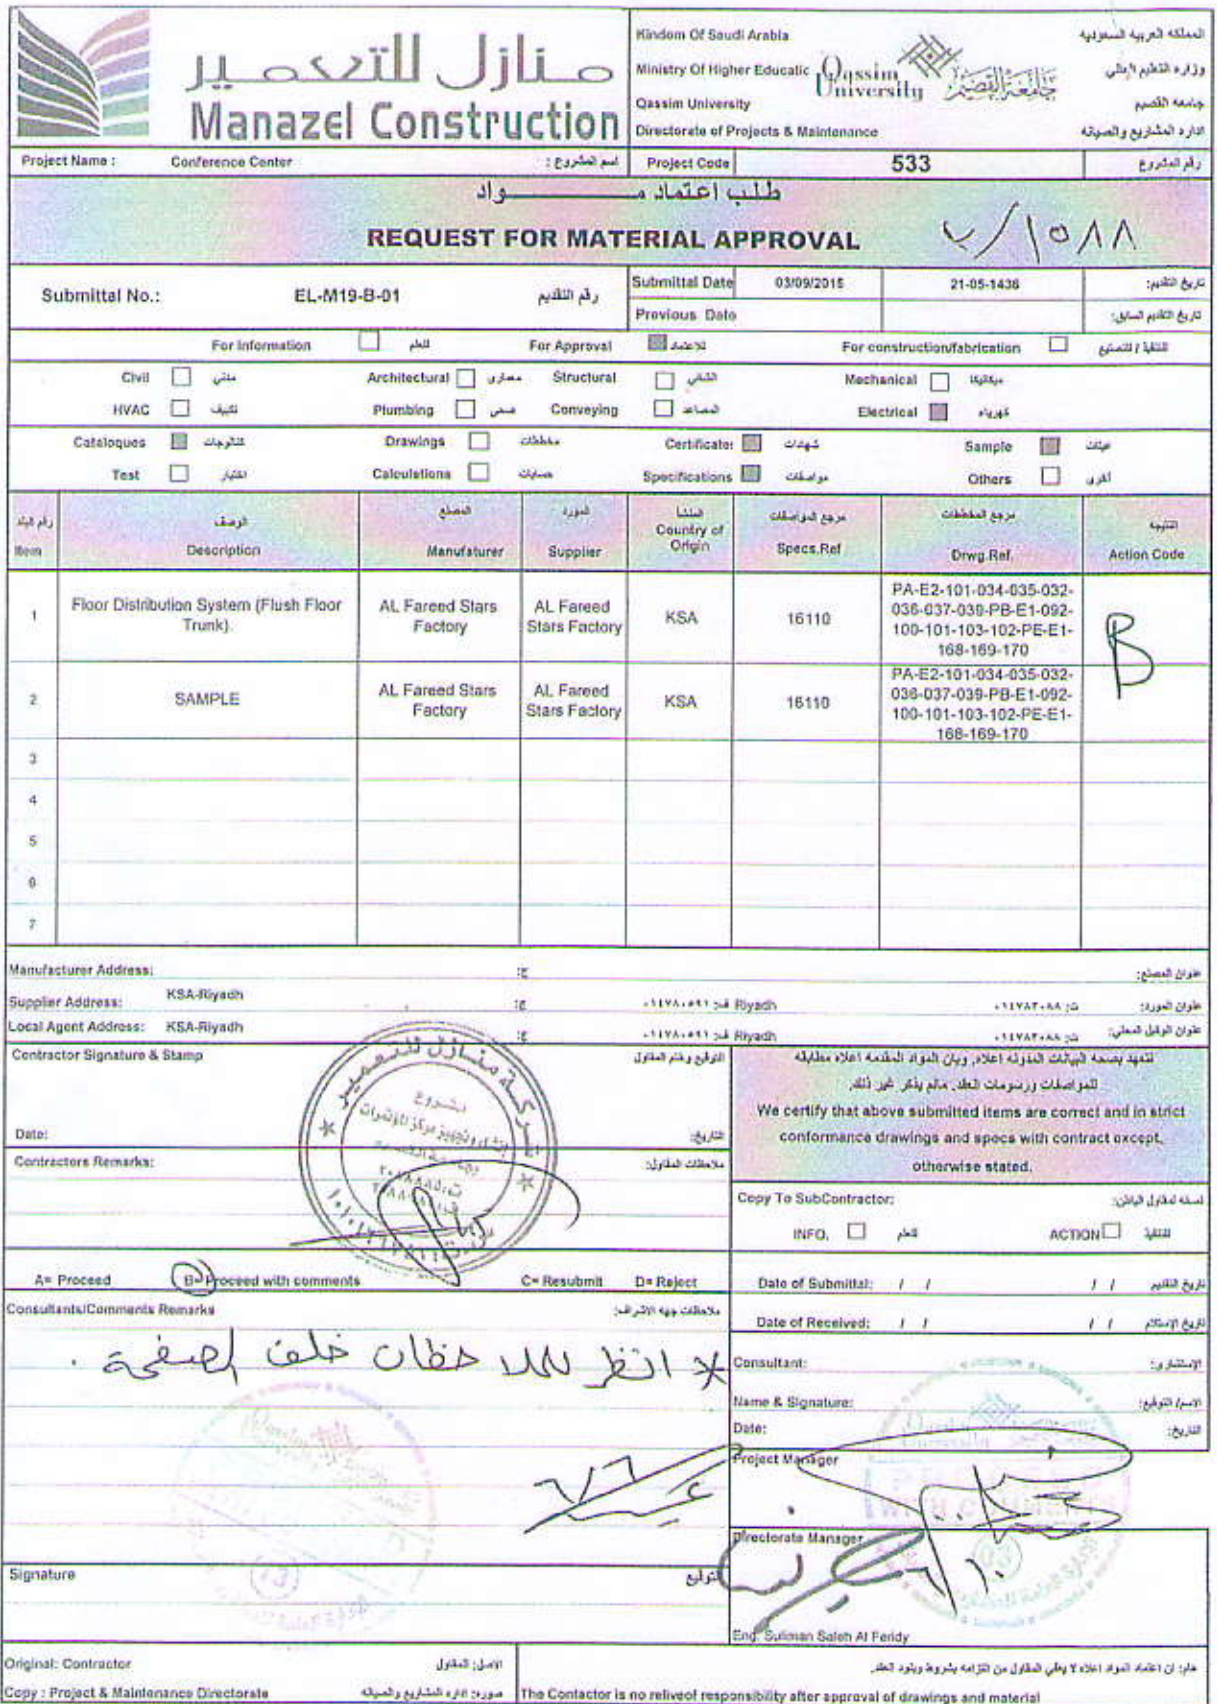 منازل للتعمير
Manazel Construction
Kindom Of Saudi Arabia
المملكه العربيه السعوديه
Ministry Of Higher Educatic
Qassim University
جامعة القصيم
وزاره التعليم العالي
Qassim University
جامعه القصيم
Directorate of Projects & Maintenance
اداره المشاريع والصيانه
Project Name : Conference Center اسم المشروع :
Project Code 533 رقم المشروع
طلب اعتماد مــــــواد
REQUEST FOR MATERIAL APPROVAL
١٥٨٨/ب
Submittal No.: EL-M19-B-01 رقم التقديم
Submittal Date 03/09/2015 21-05-1436 تاريخ التقديم:
Previous Date تاريخ التقديم السابق:
For Information للعلم For Approval للاعتماد For construction/fabrication للتنفيذ / للتصنيع
Civil مدني Architectural معماري Structural انشائي Mechanical ميكانيكا
HVAC تكييف Plumbing صحي Conveying المصاعد Electrical كهرباء
Cataloques كتالوجات Drawings مخططات Certificate: شهادات Sample عينات
Test اختبار Calculetions حسابات Specifications مواصفات Others أخرى
رقم البند الوصف المصنع المورد المنشا مرجع المواصفات مرجع المخططات النتيجه
Item Description Manufaturer Supplier Country of Origin Specs.Ref Drwg.Ref. Action Code
1 Floor Distribution System (Flush Floor Trunk). AL Fareed Stars Factory AL Fareed Stars Factory KSA 16110 PA-E2-101-034-035-032-036-037-039-PB-E1-092-100-101-103-102-PE-E1-168-169-170 B
2 SAMPLE AL Fareed Stars Factory AL Fareed Stars Factory KSA 16110 PA-E2-101-034-035-032-036-037-039-PB-E1-092-100-101-103-102-PE-E1-168-169-170
3
4
5
6
7
Manufacturer Address: ج: عنوان المصنع:
Supplier Address: KSA-Riyadh ج: ف: ٠١٤٧٨٠٥٩١ Riyadh ت: ٠١٤٧٨٣٠٨٨ عنوان المورد:
Local Agent Address: KSA-Riyadh ج: ف: ٠١٤٧٨٠٥٩١ Riyadh ت: ٠١٤٧٨٣٠٨٨ عنوان الوكيل المحلي:
Contractor Signature & Stamp التوقيع وختم المقاول
شركة منازل للتعمير
Date: التاريخ:
Contractors Remarks: ملاحظات المقاول:
نتعهد بصحه البيانات المدونه اعلاه, وبان المواد المقدمه اعلاه مطابقه
للمواصفات ورسومات العقد, مالم يذكر غير ذلك.
We certify that above submitted items are correct and in strict
conformance drawings and specs with contract except,
otherwise stated.
Copy To SubContractor: نسخه لمقاول الباطن:
INFO. للعلم ACTION للتنفيذ
A= Proceed B= Proceed with comments C= Resubmit D= Reject
Date of Submittal: / / / / تاريخ التقديم
Date of Received: / / / / تاريخ الإستلام
Consultants/Comments Remarks ملاحظات جهه الاشراف:
* انظر للملاحظات خلف الصفحة .
Consultant: الإستشاري:
Name & Signature: الاسم/ التوقيع:
Date: التاريخ:
Project Manager
Directorate Manager
Eng. Suliman Saleh Al Feridy
Signature التوقيع
Original: Contractor الاصل: المقاول
Copy : Project & Maintenance Directorate صوره: اداره المشاريع والصيانه
هام: ان اعتماد المواد اعلاه لا يعفي المقاول من التزامه بشروط وبنود العقد.
The Contactor is no reliveof responsibility after approval of drawings and material